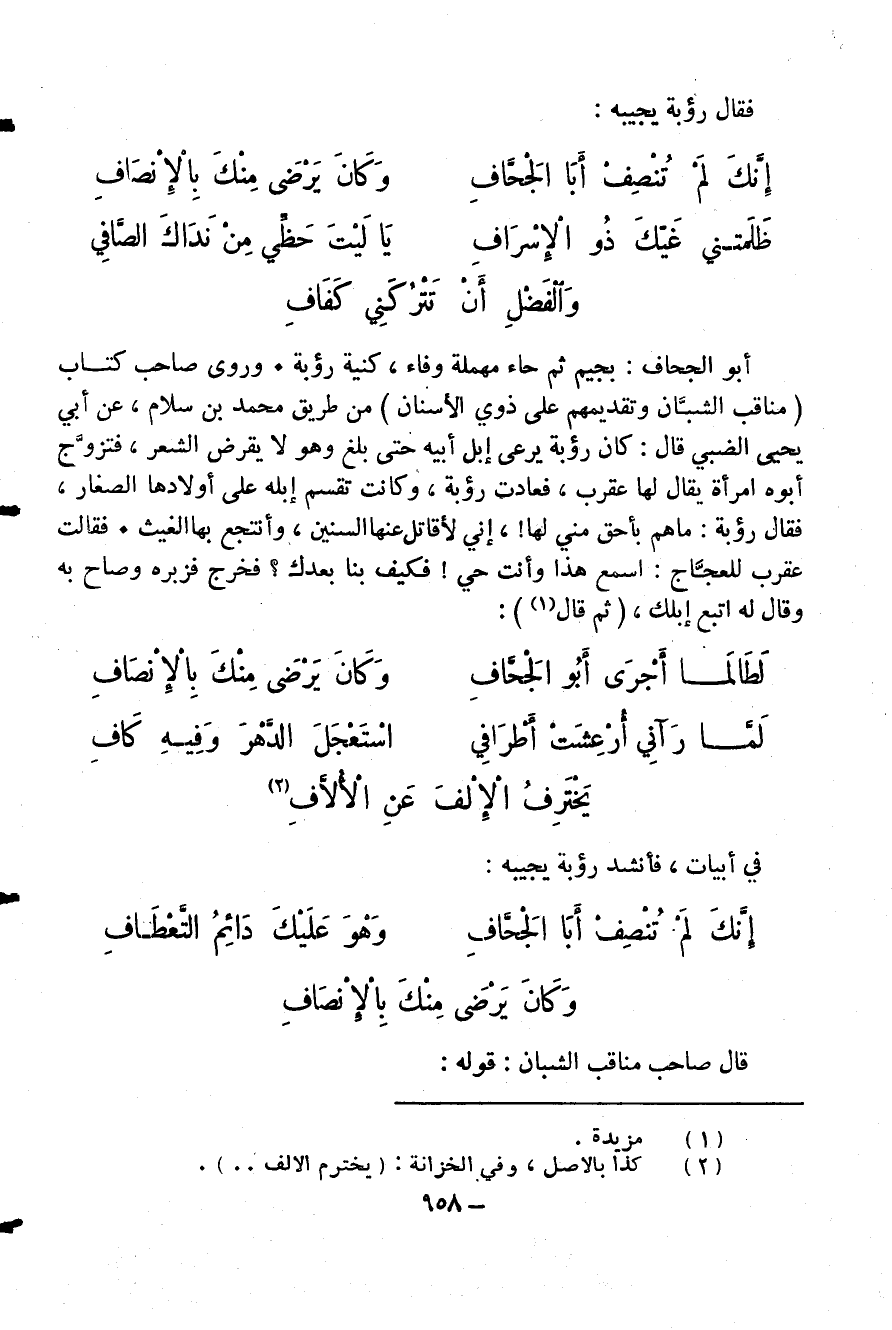 فقال رؤبة يجيبه :
إِنَّكَ لَمْ تُنْصِفْ أَبَا الجَحَّافِ وَكَانَ يَرْضَى مِنْكَ بِالْإِنْصَافِ
ظَلَمتـني غَيّكَ ذُو الْإِسْرَافِ يَا لَيْتَ حَظِّي مِنْ نَدَاكَ الصَّافِي
وَالْفَضْلِ أَنْ تَتْرُكَنِي كَفَافِ
أبو الجحاف : بجيم ثم حاء مهملة وفاء ، كنية رؤبة . وروى صاحب كتــاب
( مناقب الشبَّان وتقديمهم على ذوي الأسنان ) من طريق محمد بن سلام ، عن أبي
يحيى الضبي قال : كان رؤبة يرعى إبل أبيه حتى بلغ وهو لا يقرض الشعر ، فتزوَّج
أبوه امرأة يقال لها عقرب ، فعادت رؤبة ، وكانت تقسم إبله على أولادها الصغار ،
فقال رؤبة : ماهم بأحق مني لها! ، إني لأقاتل عنها السنين ، وأنتجع بها الغيث . فقالت
عقرب للعجَّاج : اسمع هذا وأنت حي ! فكيف بنا بعدك ؟ فخرج فزبره وصاح به
وقال له اتبع إبلك ، ( ثم قال(١) ) :
لَطَالَمَــا أَجْرَى أَبُو الجَحَّافِ وَكَانَ يَرْضَى مِنْكَ بِالْإِنْصَافِ
لَمَّــا رَآنِي أُرْعِشَتْ أَطْرَافِي اسْتَعْجَلَ الدَّهْرَ وَفِيـهِ كَافِ
يَخْتَرِفُ الْإِلْفَ عَنِ الْأُلاَّفِ(٢)
في أبيات ، فأنشد رؤبة يجيبه :
إِنَّكَ لَمْ تُنْصِفْ أَبَا الجَحَّافِ وَهْوَ عَلَيْكَ دَائِمُ التَّعْطَـافِ
وَكَانَ يَرْضَى مِنْكَ بِالْإِنْصَافِ
قال صاحب مناقب الشبان : قوله :
(١) مزيدة .
(٢) كذا بالاصل ، وفي الخزانة : ( يخترم الالف . . ) .
– ٦٥٨